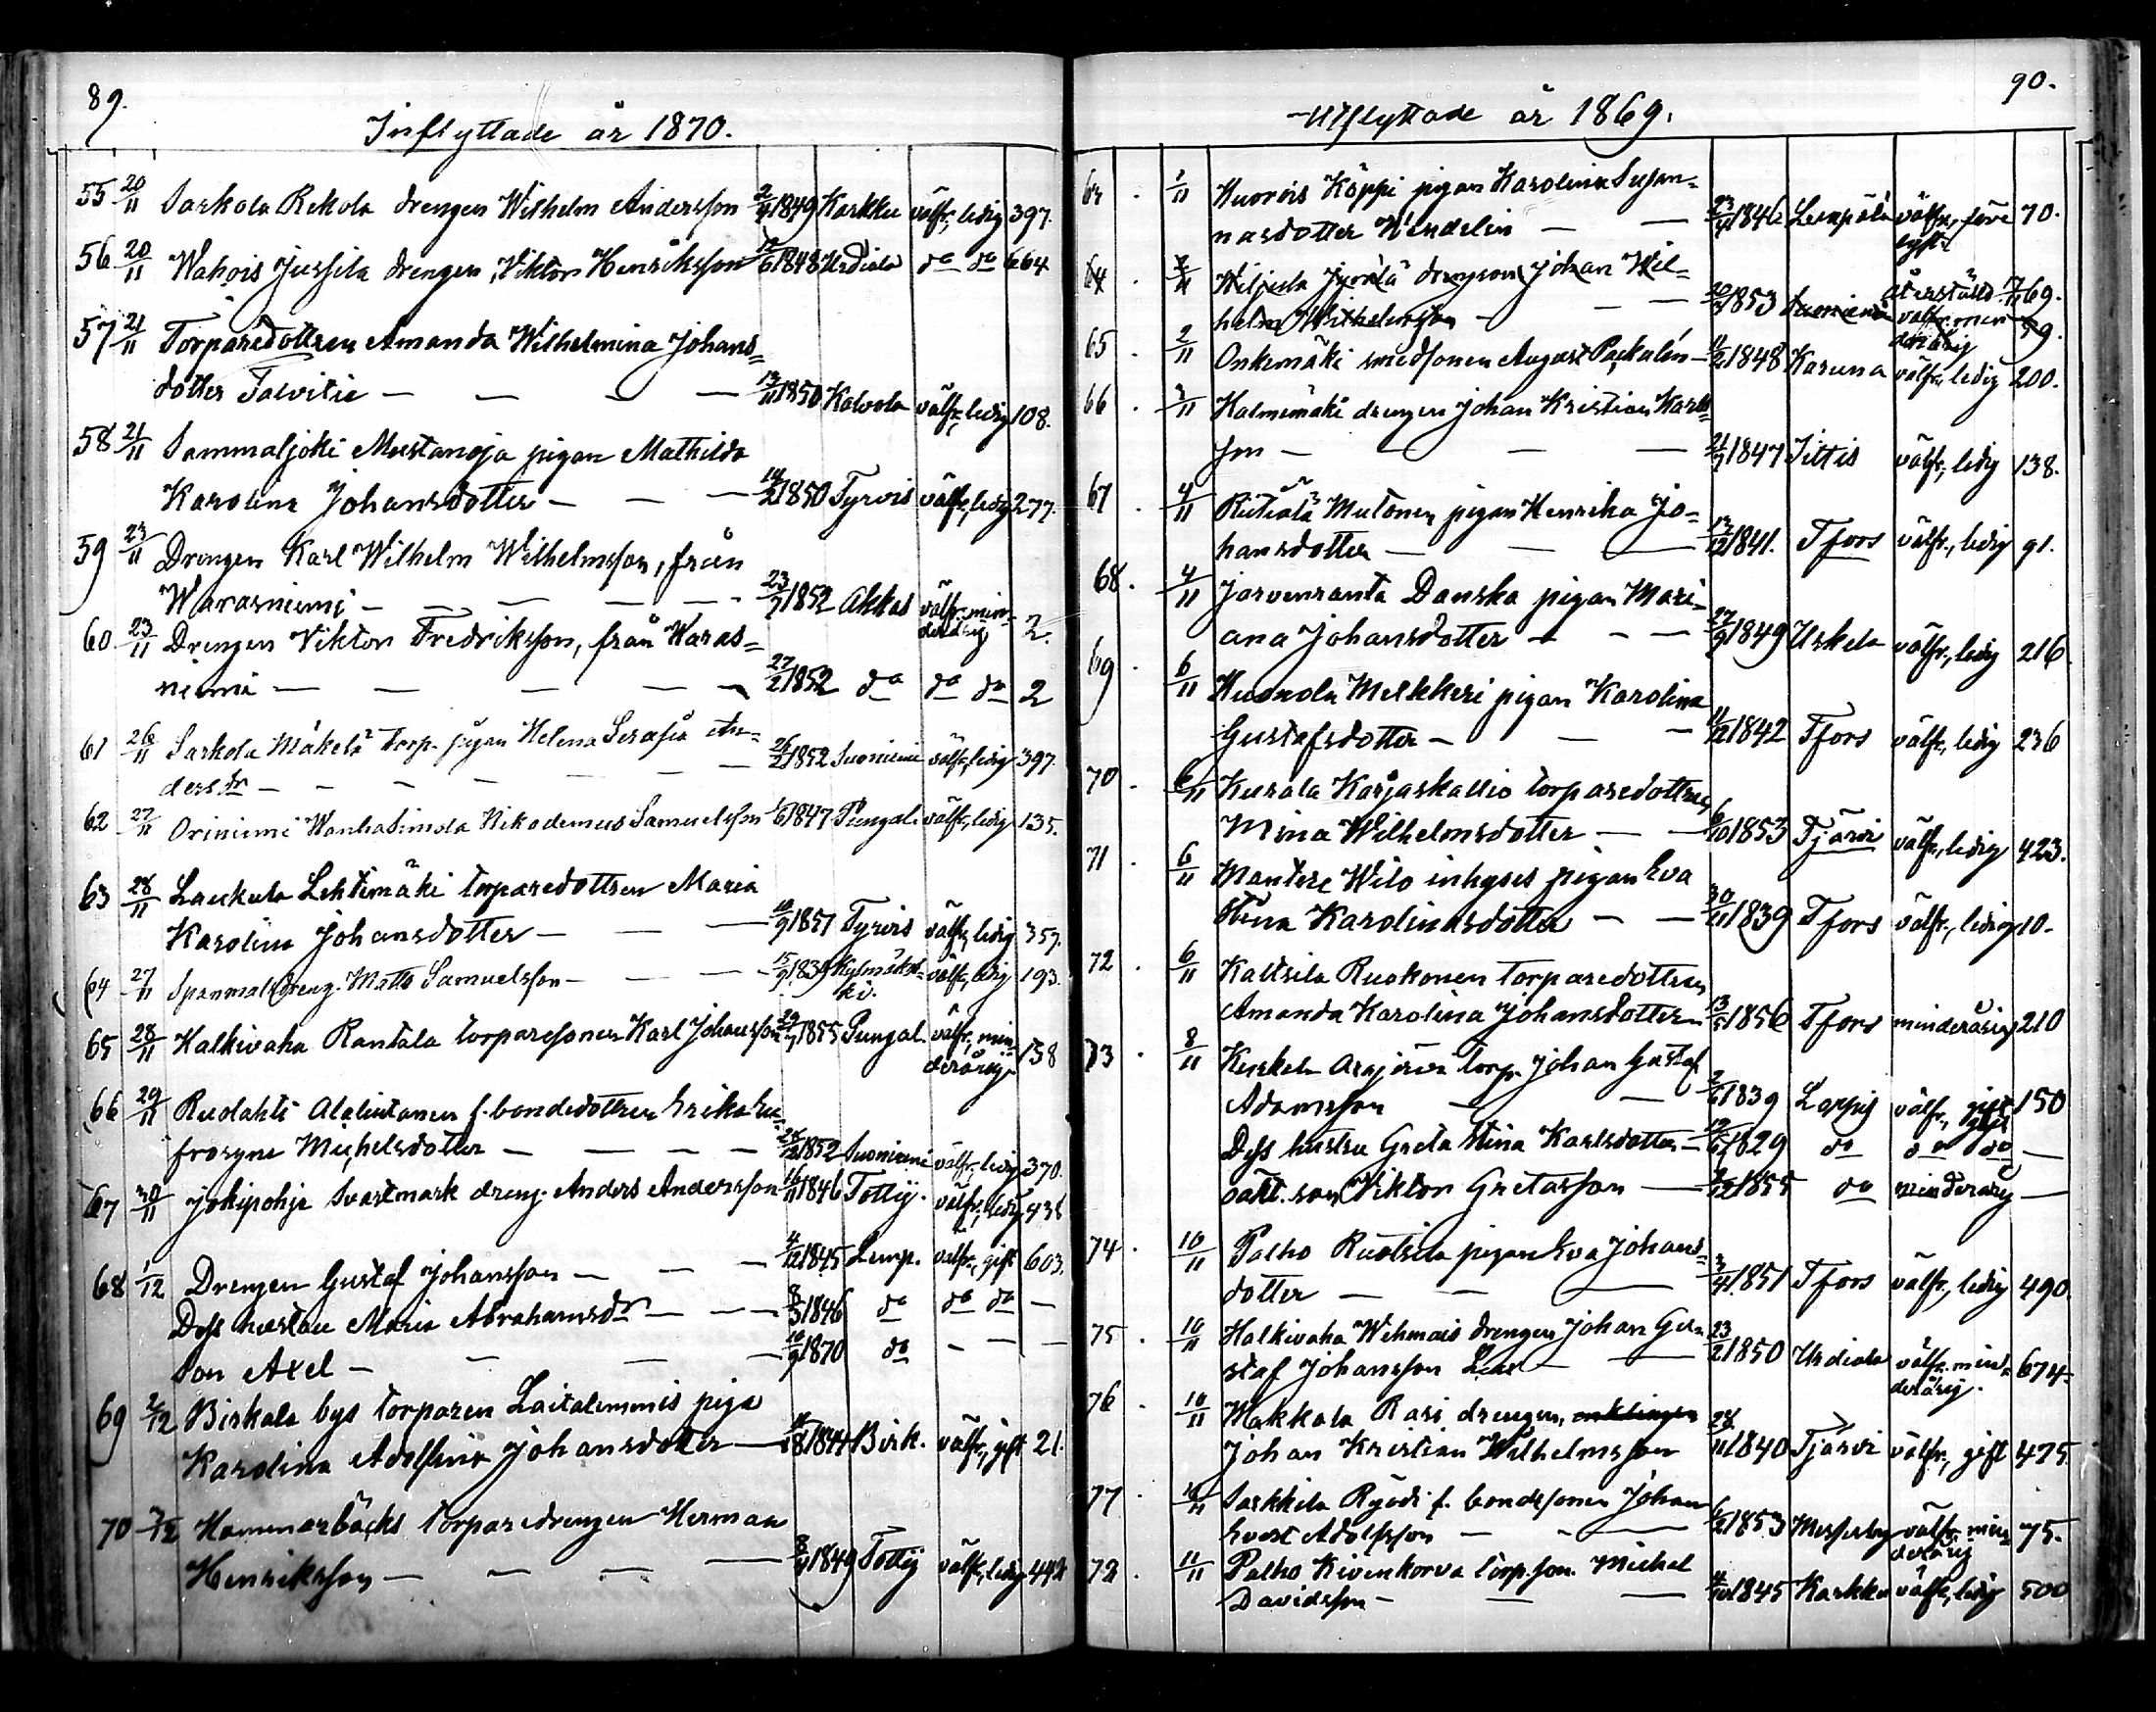 89.
Inflyttade år 1870.
55 20/11 Sarkola Rekola drengen Wilhelm Andersson 1849 Karkku välfr., ledig 397.
56 20/11 Wahois Jussila drengen Viktor Henriksson 1848 Urdiala do do 664
57 21/11 Torparedottren Amanda Wilhelmina Johans=
dotter Talvitie — — — — 13/11 1850 Kalvola välfr., ledig 108.
58 21/11 Sammaljoki Mustanoja pigan Mathilda
Karolina Johansdotter — — — 1850 Tyrvis välfr., ledig 277.
59 23/11 Drengen Karl Wilhelm Wilhelmsson, från
Warasniemi — — — — 23/7 1852 Akkas välfr., min=
derårig 2.
60. 23/11 Drengen Viktor Fredriksson, från Waras=
niemi — — — — 27/2 1852 do do do 2
61 26/11 Sarkola Mäkelä torp. pigan Helena Serafia An=
dersdr — — — — 26/2 1852 Suoniemi välfr., ledig 397.
62 27/11 Oriniemi Wanhasimola Nikodemus Samuelsson 1847 Pungal. välfr., ledig 135.
63 28/11 Laukula Lehtimäki torparedottren Maria
Karolina Johansdotter — — 10/9 1851 Tyrvis välfr., ledig 357.
64 27/11 dreng. Matts Samuelsson — — — 15/9 1839 välfr., ledig 193.
65 28/11 Halkivaha Rantala torparesonen Karl Johansson 29/7 1855 Pungal. välfr., min=
derårig 138
66 29/11 Ruolahti f. bondedottren Erika Eu=
frosyne Michelsdotter — — — 1852 Suoniemi välfr., ledig 370.
67 30/11 Jokipohja Svartmark dreng. Anders Andersson 16/11 1846 Tottij. välfr., ledig 438
68 1/12 Drengen Gustaf Johansson — — — 4/12 1845 Lemp. välfr., gift 603.
Dess hustru Maria Abrahamsdr — — — 8/3 1846 do do do —
Son Axel — — — — 10/9 1870 do — — —
69 2/12 Birkala bys torparen Laitalemmis piga
Karolina Adolfina Johansdotter — 1844 Birk. välfr., gift 21.
70 Hammarbäcks torparedrengen Herman
Henriksson — — — — 1849 Tottij välfr., ledig 442
90.
Utflyttade år 1869.
1/11 Huorois Köppi pigan Karolina Susan=
nasdotter Wendelin — — 1846 Lempälä välfr., före 70.
64 Wiljula drengson Johan Wil=
helm Wilhelmsson — — 1853 Suoniemi återställd 69.
välfr., min
derårig 59.
65 2/11 Onkemäki smedsonen August Packalén — 11/2 1848 Karuna välfr., ledig 200.
66 Halmemäki drengen Johan Kristian Karls=
son — — — — 1847 Jittis välfr., ledig 138.
67 4/11 Mutonen pigan Henrika Jo=
hansdotter — — — 1841. Tfors välfr., ledig 91.
68. 4/11 Jarvenranta Danska pigan Mari=
ana Johansdotter — — — 27/9 1849 Uskela välfr., ledig 216
69 6/11 Melkkeri pigan Karolina
Gustafsdotter — — — 11/12 1842 Tfors välfr., ledig 236
70 6/11 Kurala Karjaskallio torparedottren
Mina Wilhelmsdotter — — 6/10 1853 Tjärvi välfr., ledig 423.
71 6/11 Mantere Wilo inhyses pigan Eva
Stina Karolinasdotter — — 30/11 1839 Tfors välfr., ledig 10.
72 6/11 Kaltsila Ruokonen torparedottren
Amanda Karolina Johansdotter — 13/5 1856 Tfors minderårig 210
73 8/11 torp. Johan Gustaf
Adamsson — — 1839 Loppis välfr., gift 150
Dess hustru Greta Stina Karlsdotter — 1829 do do do —
oäkt. son Viktor Gretasson — 1855 do minderårig —
74 10/11 Palho Ruotsila pigan Eva Johans=
dotter — — — 3/4 1851 Tfors välfr., ledig 490.
75 10/11 Halkivaha Wehmais drengen Johan Gu=
staf Johansson — 23/2 1850 Urdiala välfr., min=
derårig. 674.
76 10/11 Makkala Rasi drengen,
Johan Kristian Wilhelmsson 28/11 1840 Tjärvi välfr., gift 475
77 Sarkkila Ryödi f. bondesonen Johan
Evert Adolfsson — — — 1853 Messuby välfr., min=
derårig 75.
78 11/11 Palho Kivenkorva torp. son. Michel
Davidsson — — — 1845 Karkku välfr., ledig 500